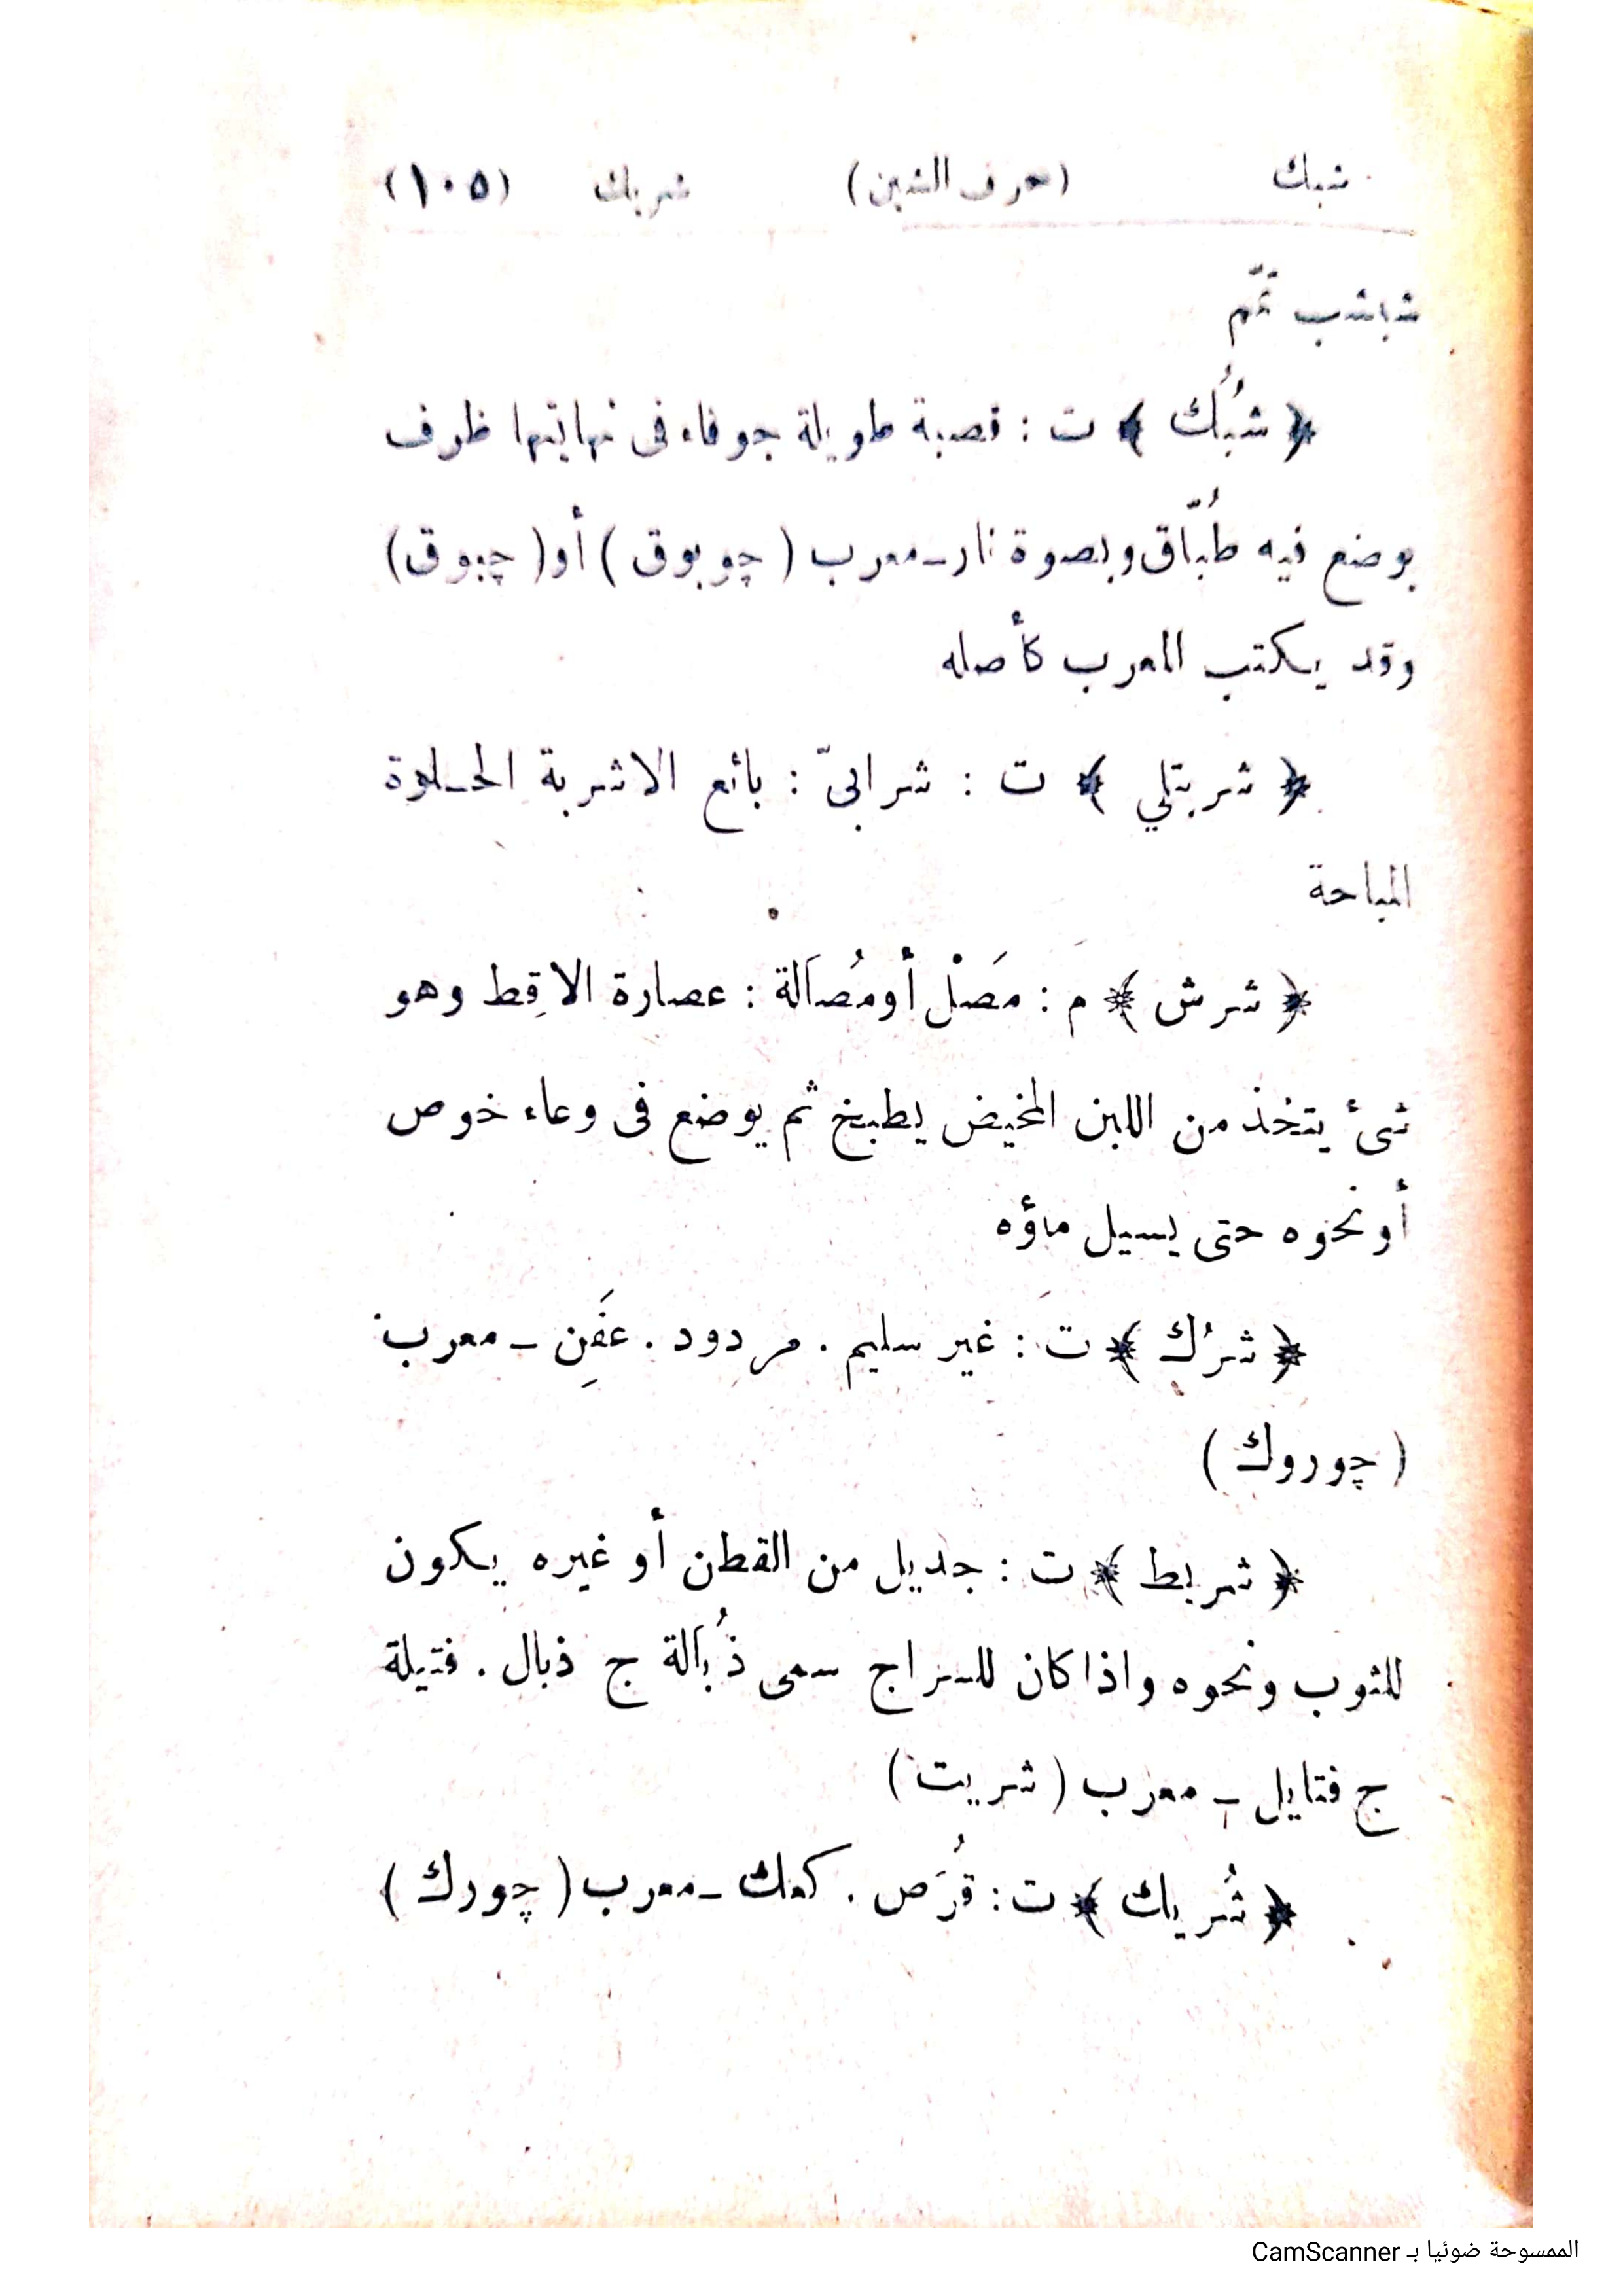 شبك (حرف الشين) شريك (١٠٥)
شبشب تمّم
﴿ شبُك ﴾ ت : قصبة طويلة جوفاء فى نهايتها ظرف
يوضع فيه طُبّاق وبصوة نار ــ معرب ( چوبوق ) أو ( چبوق )
وقد يكتب المعرب كأصله
﴿ شربتلي ﴾ ت : شرابىّ : بائع الاشربة الحـلوة
المباحة
﴿ شرش ﴾ م : مَصْل أو مُصَالة : عصارة الاقِط وهو
شىء يتخذ من اللبن المخيض يطبخ ثم يوضع فى وعاء خوص
أو نحوه حتى يسيل ماؤه
﴿ شرُك ﴾ ت : غير سليم . مردود . عَفَِن ــ معرب
( چوروك )
﴿ شريط ﴾ ت : جديل من القطن أو غيره يكون
للثوب ونحوه واذا كان للسراج سمى ذُبَالة ج ذبال . فتيلة
ج فتايل ــ معرب ( شريت )
﴿ شُريك ﴾ ت : قُرَص . كعك ــ معرب ( چورك )
الممسوحة ضوئيا بـ CamScanner